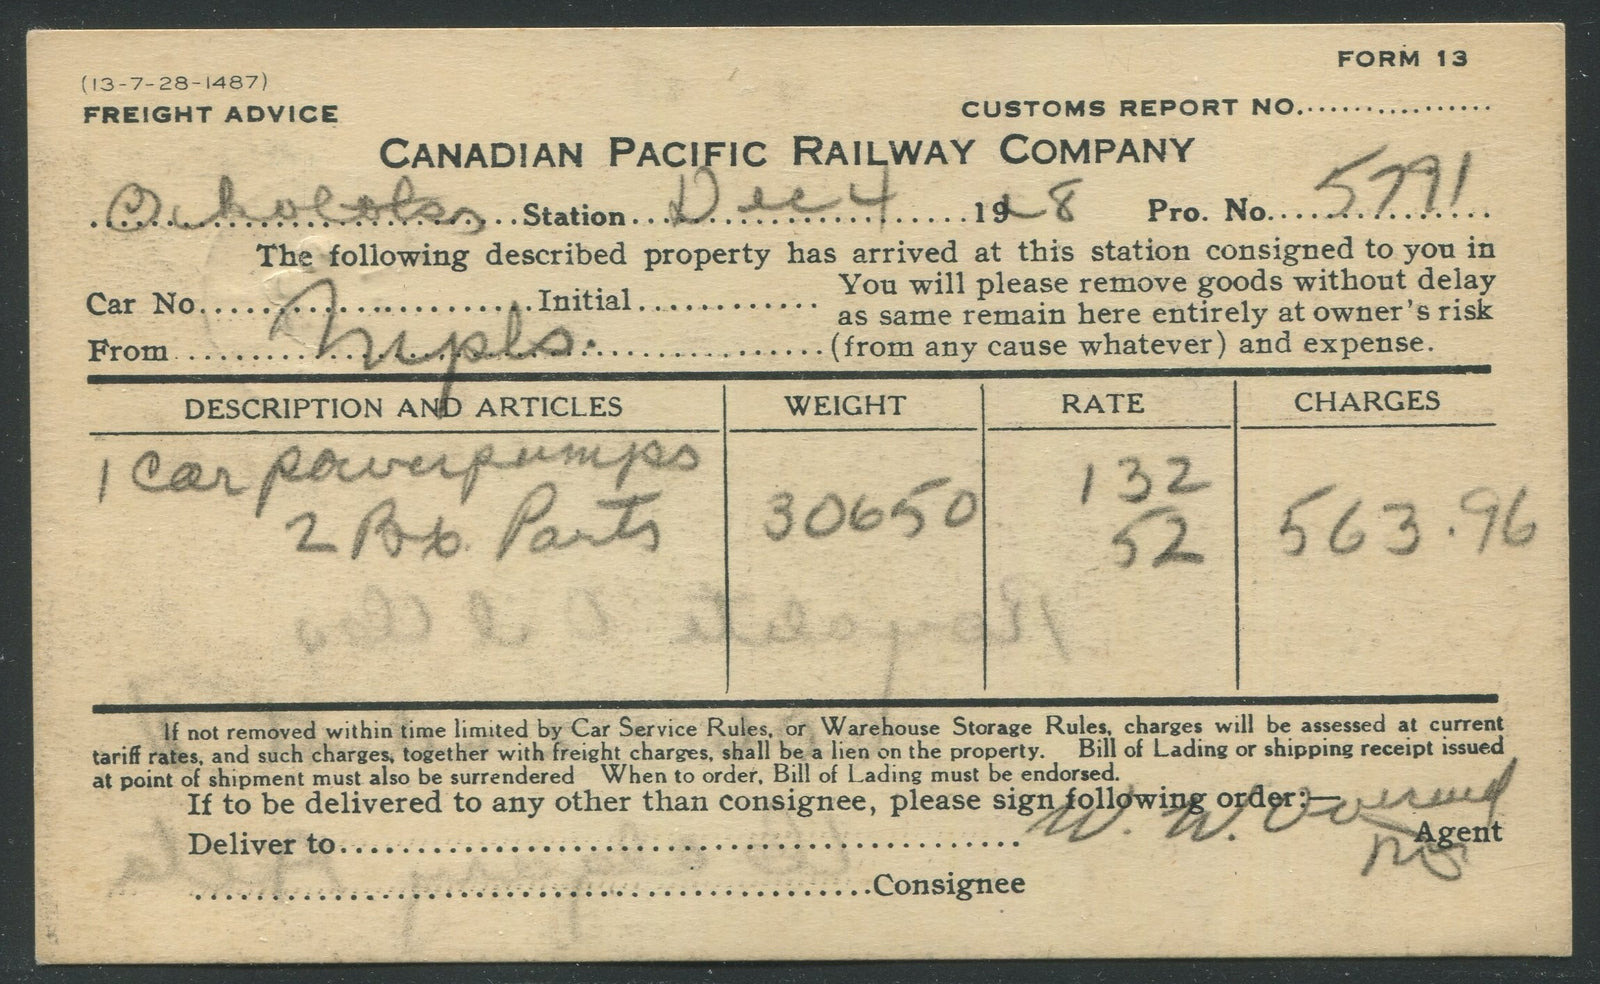 FORM 13
(13-7-28-1487)
FREIGHT ADVICE
CUSTOMS REPORT NO.................
CANADIAN PACIFIC RAILWAY COMPANY
Okotoks Station Dec 4 1928 Pro. No. 5791
The following described property has arrived at this station consigned to you in
Car No. Initial You will please remove goods without delay
as same remain here entirely at owner's risk
From Mpls. (from any cause whatever) and expense.
DESCRIPTION AND ARTICLES WEIGHT RATE CHARGES
1 Car power pumps 132
2 Bx. Parts 30650 52 563.96
If not removed within time limited by Car Service Rules, or Warehouse Storage Rules, charges will be assessed at current
tariff rates, and such charges, together with freight charges, shall be a lien on the property. Bill of Lading or shipping receipt issued
at point of shipment must also be surrendered When to order, Bill of Lading must be endorsed.
If to be delivered to any other than consignee, please sign following order:—
Deliver to W. W. Agent
Consignee